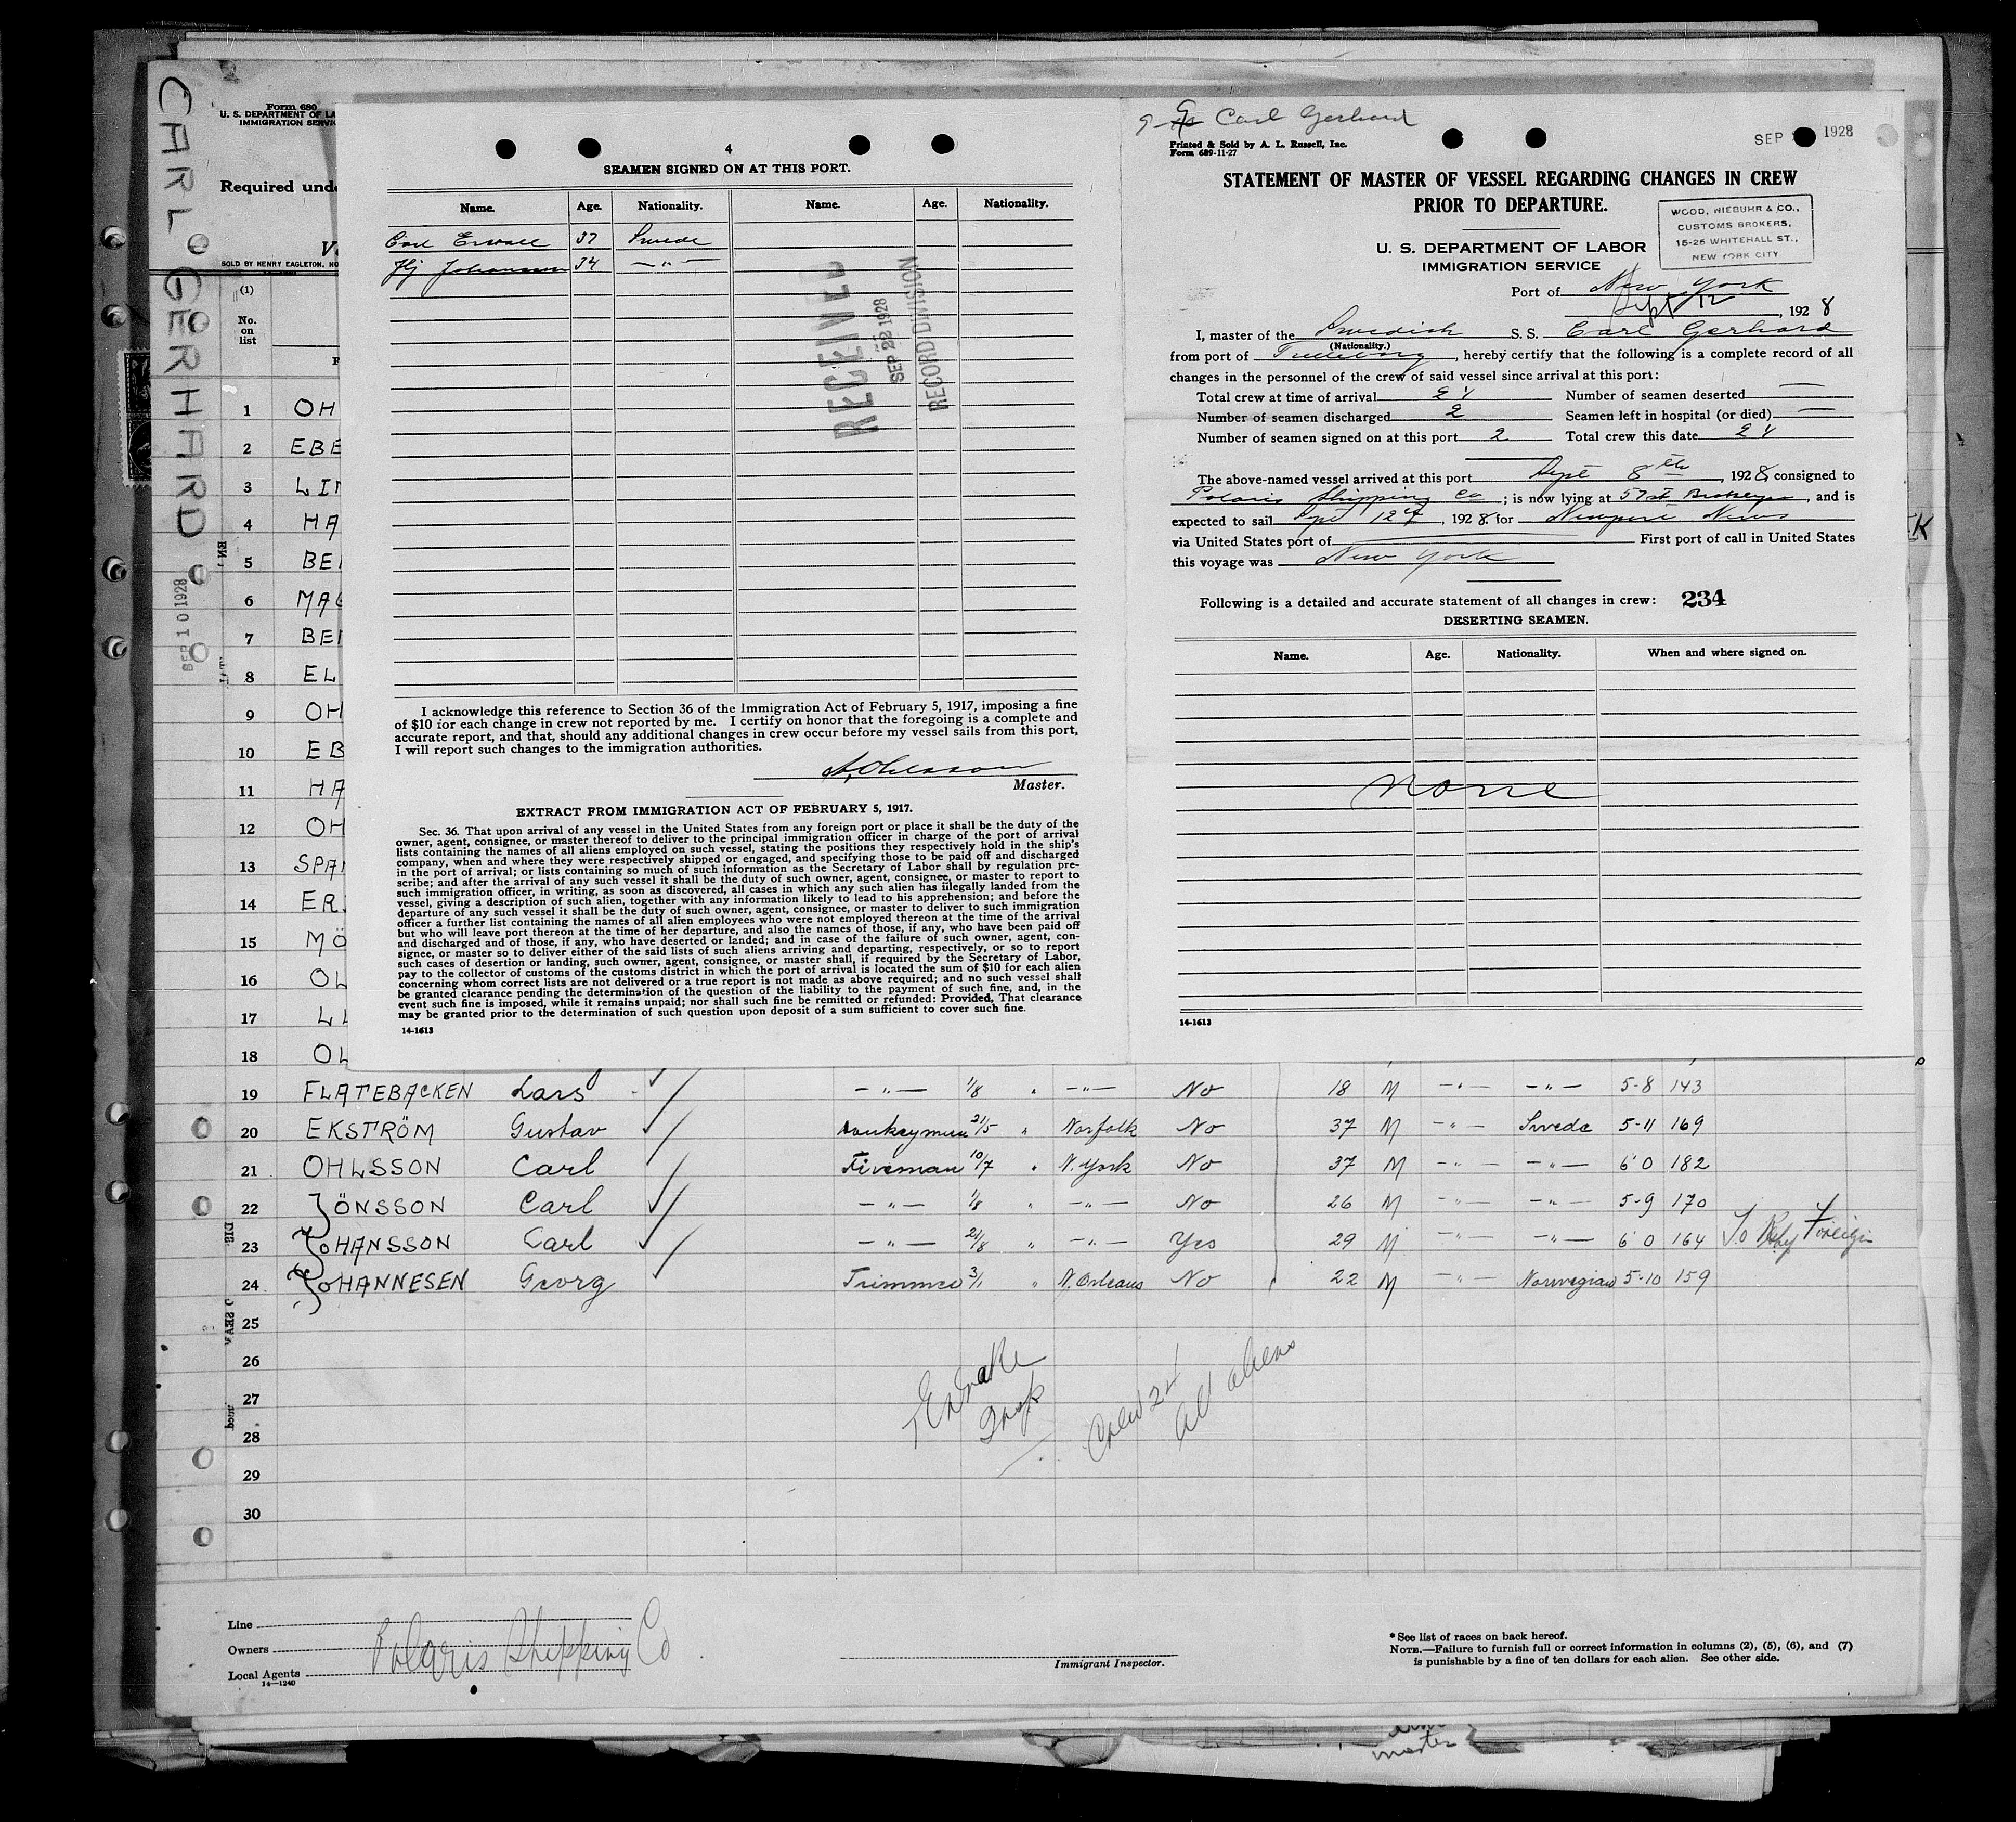 CARL GERHARD
SEP 10 1928
Form 680
U. S. DEPARTMENT OF LA
IMMIGRATION SERVI
Required und
V
SOLD BY HENRY EAGLETON, NO
(1)
No.
on
list
F
1 OH
2 EBE
3 LIN
4 HA
5 BE
6 MAG
7 BE
8 EL
9 OH
10 EB
11 HA
12 OH
13 SPA
14 ER
15 MÖ
16 OL
17 LI
18 OL
4
SEAMEN SIGNED ON AT THIS PORT.
Name. Age. Nationality. Name. Age. Nationality.
Carl Ervall 37 Swede
Hj Johansson 34 — " —
RECEIVED
SEP 22 1928
RECORD DIVISION
I acknowledge this reference to Section 36 of the Immigration Act of February 5, 1917, imposing a fine
of $10 for each change in crew not reported by me. I certify on honor that the foregoing is a complete and
accurate report, and that, should any additional changes in crew occur before my vessel sails from this port,
I will report such changes to the immigration authorities.
A. Ohlsson
Master.
EXTRACT FROM IMMIGRATION ACT OF FEBRUARY 5, 1917.
Sec. 36. That upon arrival of any vessel in the United States from any foreign port or place it shall be the duty of the
owner, agent, consignee, or master thereof to deliver to the principal immigration officer in charge of the port of arrival
lists containing the names of all aliens employed on such vessel, stating the positions they respectively hold in the ship's
company, when and where they were respectively shipped or engaged, and specifying those to be paid off and discharged
in the port of arrival; or lists containing so much of such information as the Secretary of Labor shall by regulation pre-
scribe; and after the arrival of any such vessel it shall be the duty of such owner, agent, consignee, or master to report to
such immigration officer, in writing, as soon as discovered, all cases in which any such alien has illegally landed from the
vessel, giving a description of such alien, together with any information likely to lead to his apprehension; and before the
departure of any such vessel it shall be the duty of such owner, agent, consignee, or master to deliver to such immigration
officer a further list containing the names of all alien employees who were not employed thereon at the time of the arrival
but who will leave port thereon at the time of her departure, and also the names of those, if any, who have been paid off
and discharged and of those, if any, who have deserted or landed; and in case of the failure of such owner, agent, con-
signee, or master so to deliver either of the said lists of such aliens arriving and departing, respectively, or so to report
such cases of desertion or landing, such owner, agent, consignee, or master shall, if required by the Secretary of Labor,
pay to the collector of customs of the customs district in which the port of arrival is located the sum of $10 for each alien
concerning whom correct lists are not delivered or a true report is not made as above required; and no such vessel shall
be granted clearance pending the determination of the question of the liability to the payment of such fine, and, in the
event such fine is imposed, while it remains unpaid; nor shall such fine be remitted or refunded: Provided, That clearance
may be granted prior to the determination of such question upon deposit of a sum sufficient to cover such fine.
14-1613
Carl Gerhard
SEP 1928
Printed & Sold by A. L. Russell, Inc.
Form 689-11-27
STATEMENT OF MASTER OF VESSEL REGARDING CHANGES IN CREW
PRIOR TO DEPARTURE.
WOOD, NIEBUHR & CO.,
CUSTOMS BROKERS,
15-25 WHITEHALL ST.,
NEW YORK CITY
U. S. DEPARTMENT OF LABOR
IMMIGRATION SERVICE
Port of New York
Sept 12, 1928
I, master of the Swedish S. S. Carl Gerhard
(Nationality.)
from port of Trelleborg, hereby certify that the following is a complete record of all
changes in the personnel of the crew of said vessel since arrival at this port:
Total crew at time of arrival 24 Number of seamen deserted —
Number of seamen discharged 2 Seamen left in hospital (or died) —
Number of seamen signed on at this port 2 Total crew this date 24
The above-named vessel arrived at this port Sept 8th, 1928, consigned to
Polaris Shipping Co; is now lying at 57 st Brooklyn, and is
expected to sail Sept 12th, 1928 for Newport News
via United States port of — First port of call in United States
this voyage was New York
Following is a detailed and accurate statement of all changes in crew: 234
DESERTING SEAMEN.
Name. Age. Nationality. When and where signed on.
None
14-1613
K
19 FLATEBACKEN Lars — " — 1/8 " — " — No 18 M — " — — " — 5-8 143
20 EKSTRÖM Gustav Donkeyman 21/5 " Norfolk No 37 M — " — Swede 5-11 169
21 OHLSSON Carl Fireman 10/7 " N. York No 37 M — " — — " — 6 0 182
22 JÖNSSON Carl — " — 1/8 " — " — No 26 M — " — — " — 5-9 170
23 JOHANSSON Carl — " — 21/8 " — " — Yes 29 M — " — — " — 6 0 164 To Reshp Foreign
24 JOHANNESEN Georg Trimmer 3/1 " N. Orleans No 22 M — " — Norwegian 5-10 159
25
26
27
28
29
30
Crew 24
all aliens
Line
Owners
Local Agents Polaris Shipping Co
14—1240
Immigrant Inspector.
* See list of races on back hereof.
NOTE.—Failure to furnish full or correct information in columns (2), (5), (6), and (7)
is punishable by a fine of ten dollars for each alien. See other side.
master